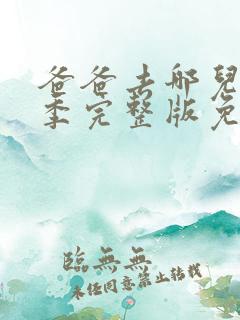 爸爸去哪兒
季完整版免
臨無無
未经同意禁止转载